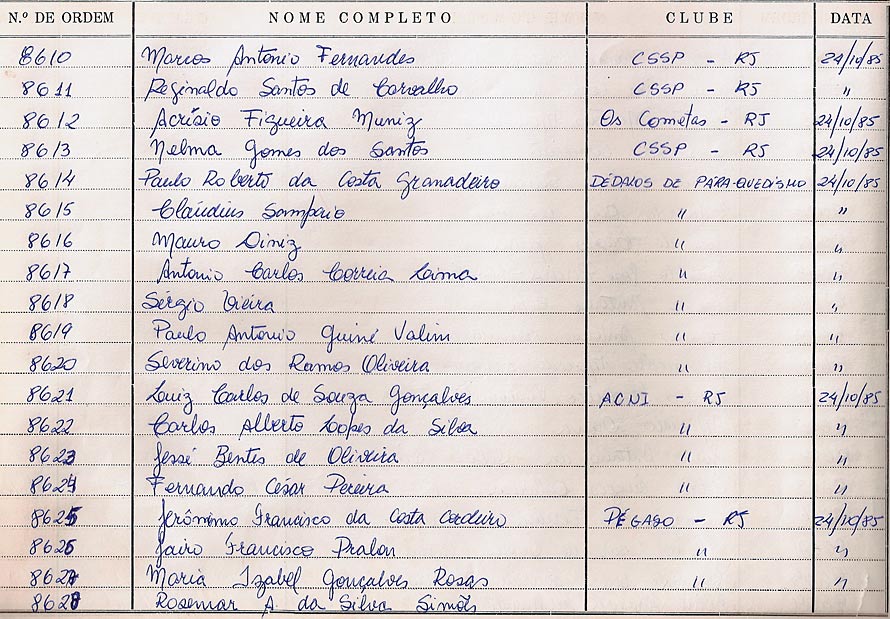 N.º DE ORDEM NOME COMPLETO CLUBE DATA
8610 Marcos Antonio Fernandes CSSP - RJ 24/10/85
8611 Reginaldo Santos de Carvalho CSSP - RJ "
8612 Acrísio Figueira Muniz Os Cometas - RJ 24/10/85
8613 Nelma Gomes dos Santos CSSP - RJ 24/10/85
8614 Paulo Roberto da Costa Granadeiro DÉDALOS DE PÁRA-QUEDISMO 24/10/85
8615 Claúdius Sampaio " "
8616 Mauro Diniz " "
8617 Antonio Carlos Correia Lima " "
8618 Sérgio Vieira " "
8619 Paulo Antonio Guiné Valim " "
8620 Severino dos Ramos Oliveira " "
8621 Luiz Carlos de Souza Gonçalves ACNI - RJ 24/10/85
8622 Carlos Alberto Lopes da Silva " "
8623 Jessé Bentes de Oliveira " "
8624 Fernando César Pereira " "
8625 Jerônimo Francisco da Costa Cordeiro PÉGASO - RJ 24/10/85
8626 Jairo Francisco Pralon " "
8627 Maria Izabel Gonçalves Rosas " "
8628 Rosemar A. da Silva Simões